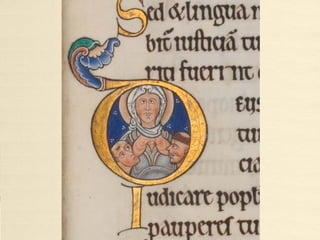 Sed & lingua m
bit̄ iusticiā tu
riti fuerint
D EUS
tu
cia
Iudicare popl
pauperes tu